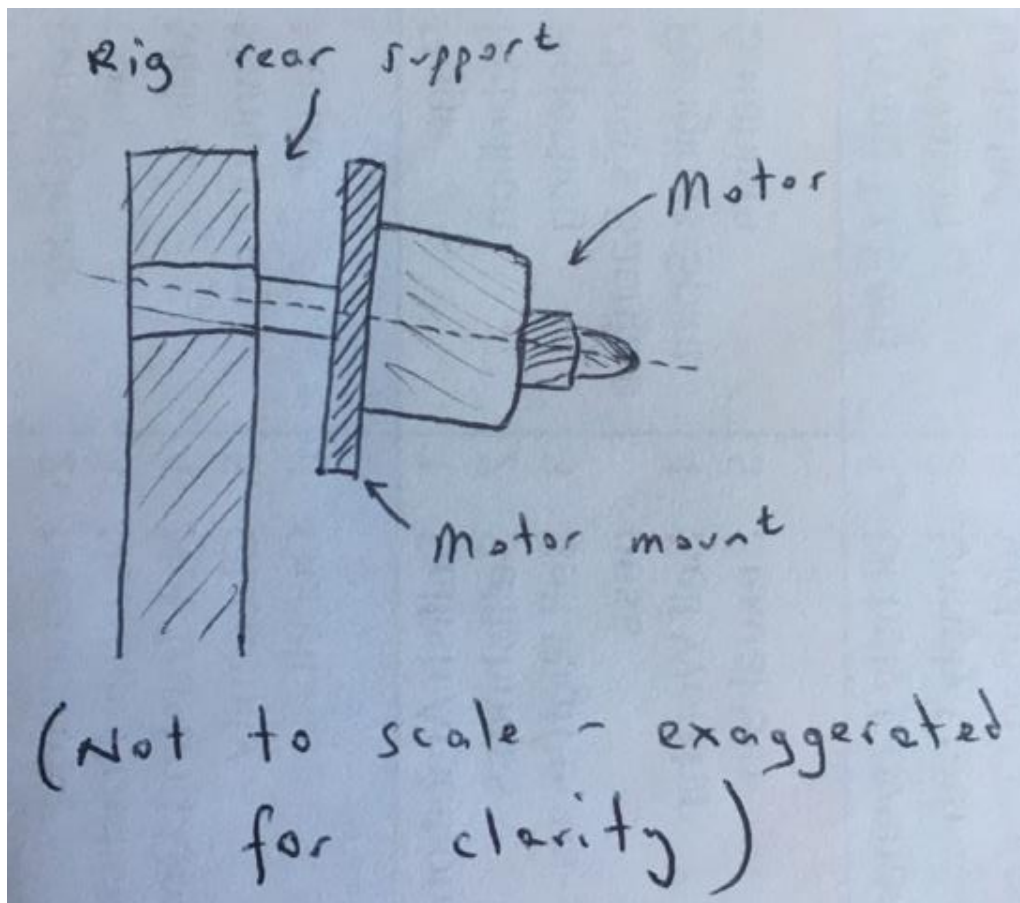 Rig rear support
Motor
Motor mount
(Not to scale - exaggerated
for clarity)